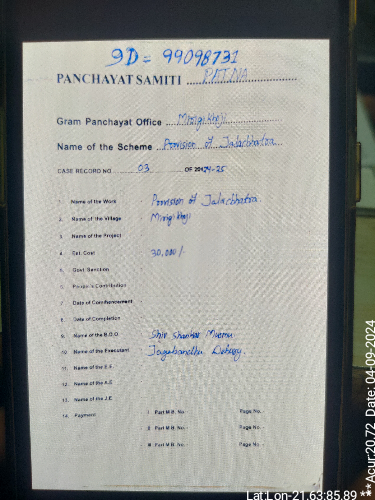 ID = 99098731
PANCHAYAT SAMITI PATNA
Gram Panchayat Office Mirigikhoji
Name of the Scheme Provision of Jalachhatra
CASE RECORD NO. 03 OF 2024-25
1. Name of the Work Provision of Jalachhatra.
2. Name of the Village Mirigikhoji
3. Name of the Project
4. Est. Cost 30,000/-
5. Govt. Sanction
6. People's Contribution
7. Date of Commencement
8. Date of Completion
9. Name of the B.D.O. Shiv Shankar Murmu
10. Name of the Executant Jagabandhu Dehury.
11. Name of the E.E
12. Name of the A.E
13. Name of the J.E
14. Payment I Part M.B. No. - Page No. -
II Part M.B. No. - Page No. -
III Part M.B. No. - Page No. -
Lat:Lon-21.63:85.89 **Acur:20.72, Date: 04-09-2024